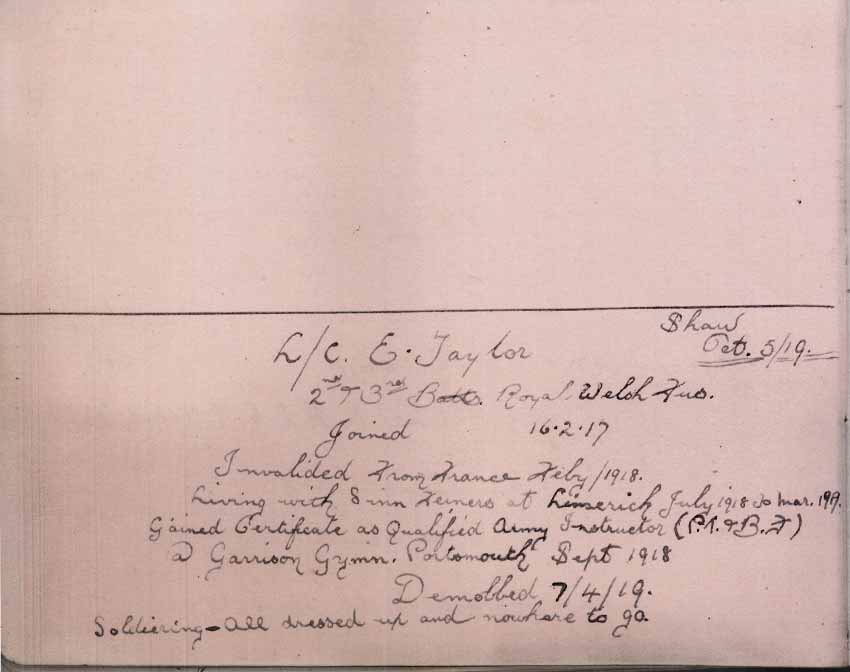 Shaw
Oct. 5/19.
L/C. E. Taylor
2nd & 3rd Batts. Royal Welsh Fus.
Joined 16.2.17
Invalided From France Feby/1918.
Living with Sinn Feiners at Limerich July 1918 to Mar. 1919.
Gained Certificate as Qualified Army Instructor (P.T. & B.F)
@ Garrison Gymn. Portsmouth Sept 1918
Demobbed 7/4/19.
Soldiering - All dressed up and nowhere to go.